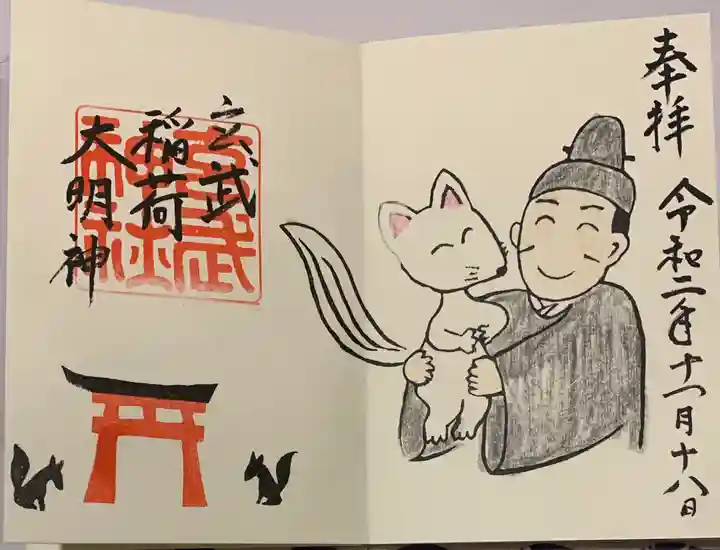 奉拝
令和二年十一月十八日
玄武
稲荷
大明神
玄武
神社